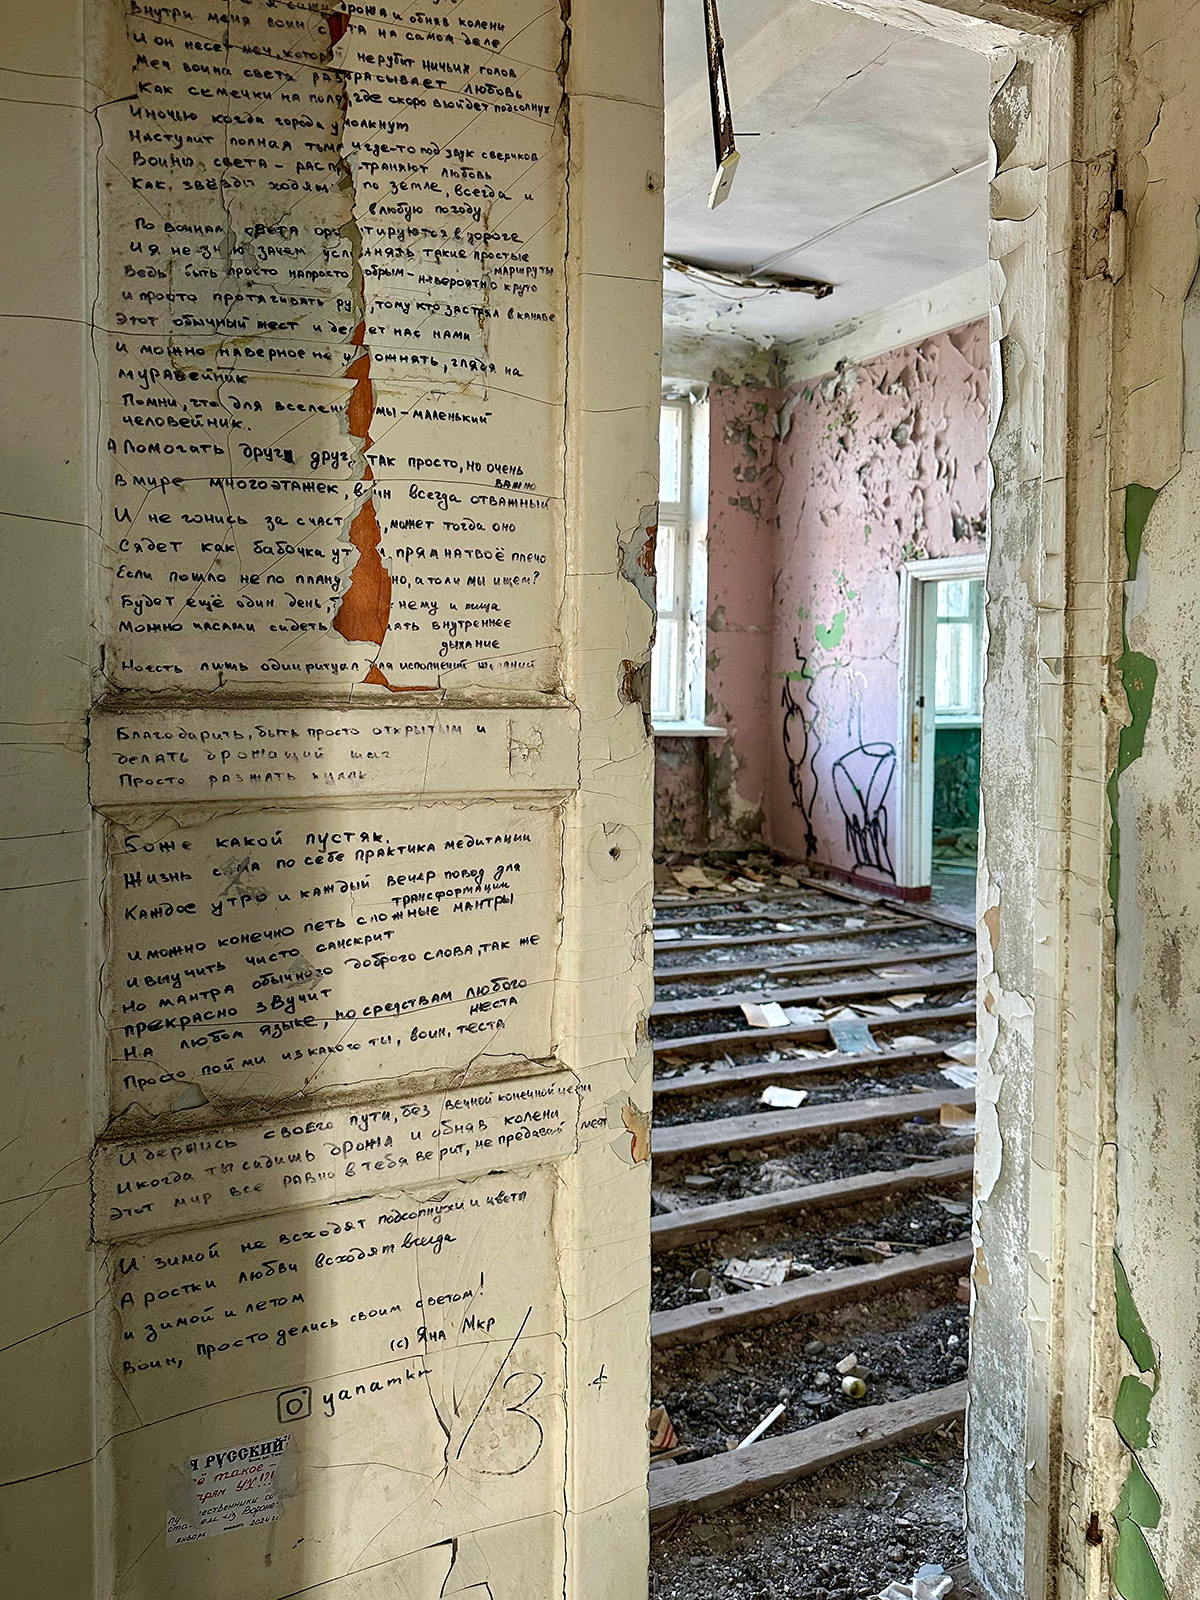 я сижу дрожа и обняв колени
Внутри меня воин света на самом деле
И он несет меч, который не рубит ничьих голов
Меч воина света разбрасывает любовь
Как семечки на поля, где скоро выйдет подсолнух
И ночью когда города умолкнут
Наступит полная тьма и где-то под звук сверчков
Воины света - распространяют любовь
Как звёзды ходят по земле, всегда и
в любую погоду
По воинам света ориентируются в дороге
И я не знаю зачем усложнять такие простые
маршруты
Ведь быть просто напросто добрым - невероятно круто
и просто протягивать руку, тому кто застрял в канаве
Этот обычный жест и делает нас нами
И можно наверное не усложнять, глядя на
муравейник
Помни, что для вселенной мы - маленький
человейник.
А помогать друг другу так просто, но очень
важно
В мире многоэтажек, воин всегда отважный
И не гонись за счастьем, может тогда оно
Сядет как бабочка утром прям на твоё плечо
Если пошло не по плану, но, а то ли мы ищем?
Будет ещё один день, к нему и пища
Можно часами сидеть внутреннее
дыхание
Но есть лишь один ритуал для исполнения желаний
Благодарить, быть просто открытым и
делать дрожащий шаг
Просто разжать кулак.
Боже какой пустяк.
Жизнь сама по себе практика медитации
Каждое утро и каждый вечер повод для
трансформации
И можно конечно петь сложные мантры
и выучить чисто санскрит
Но мантра обычного доброго слова, так же
прекрасно звучит
На любом языке, по средствам любого
жеста
Просто пойми из какого ты, воин, теста
И держись своего пути, без вечной конечной цели
И когда ты сидишь дрожа и обняв колени
Этот мир все равно в тебя верит, не предавай мечт
И зимой не всходят подсолнухи и цветы
А ростки любви всходят всегда
и зимой и летом
Воин, просто делись своим светом!
(с) Яна Мкр
yanamkr
Я РУССКИЙ
такое -
УХ!!?!
из Вороне
январь 2024 г.